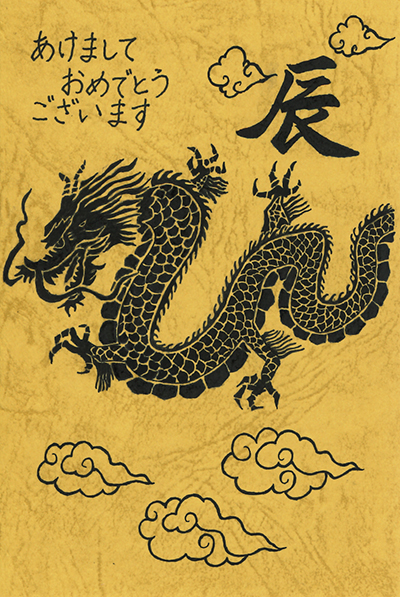 あけまして
おめでとう
ございます
辰